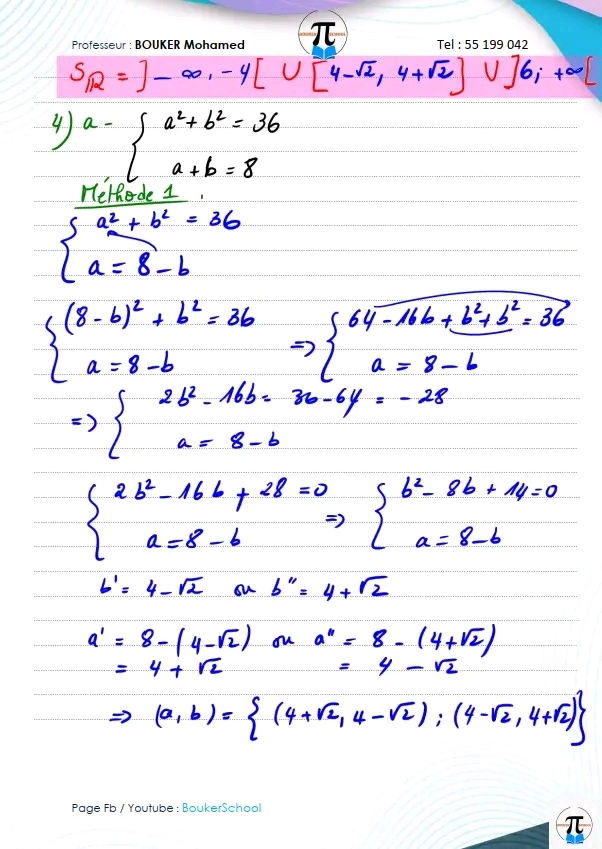 Professeur : BOUKER Mohamed Tel : 55 199 042
S_ℝ = ]-∞, -4[ ∪ [4-√2, 4+√2] ∪ ]6; +∞[
4) a - { a² + b² = 36
a + b = 8
Méthode 1 .
{ a² + b² = 36
a = 8 - b
{ (8 - b)² + b² = 36 => { 64 - 16b + b² + b² = 36
a = 8 - b a = 8 - b
=> { 2b² - 16b = 36 - 64 = - 28
a = 8 - b
{ 2b² - 16b + 28 = 0 => { b² - 8b + 14 = 0
a = 8 - b a = 8 - b
b' = 4 - √2 ou b" = 4 + √2
a' = 8 - (4 - √2) ou a" = 8 - (4 + √2)
= 4 + √2 = 4 - √2
=> (a, b) = { (4+√2, 4-√2) ; (4-√2, 4+√2) }
Page Fb / Youtube : BoukerSchool